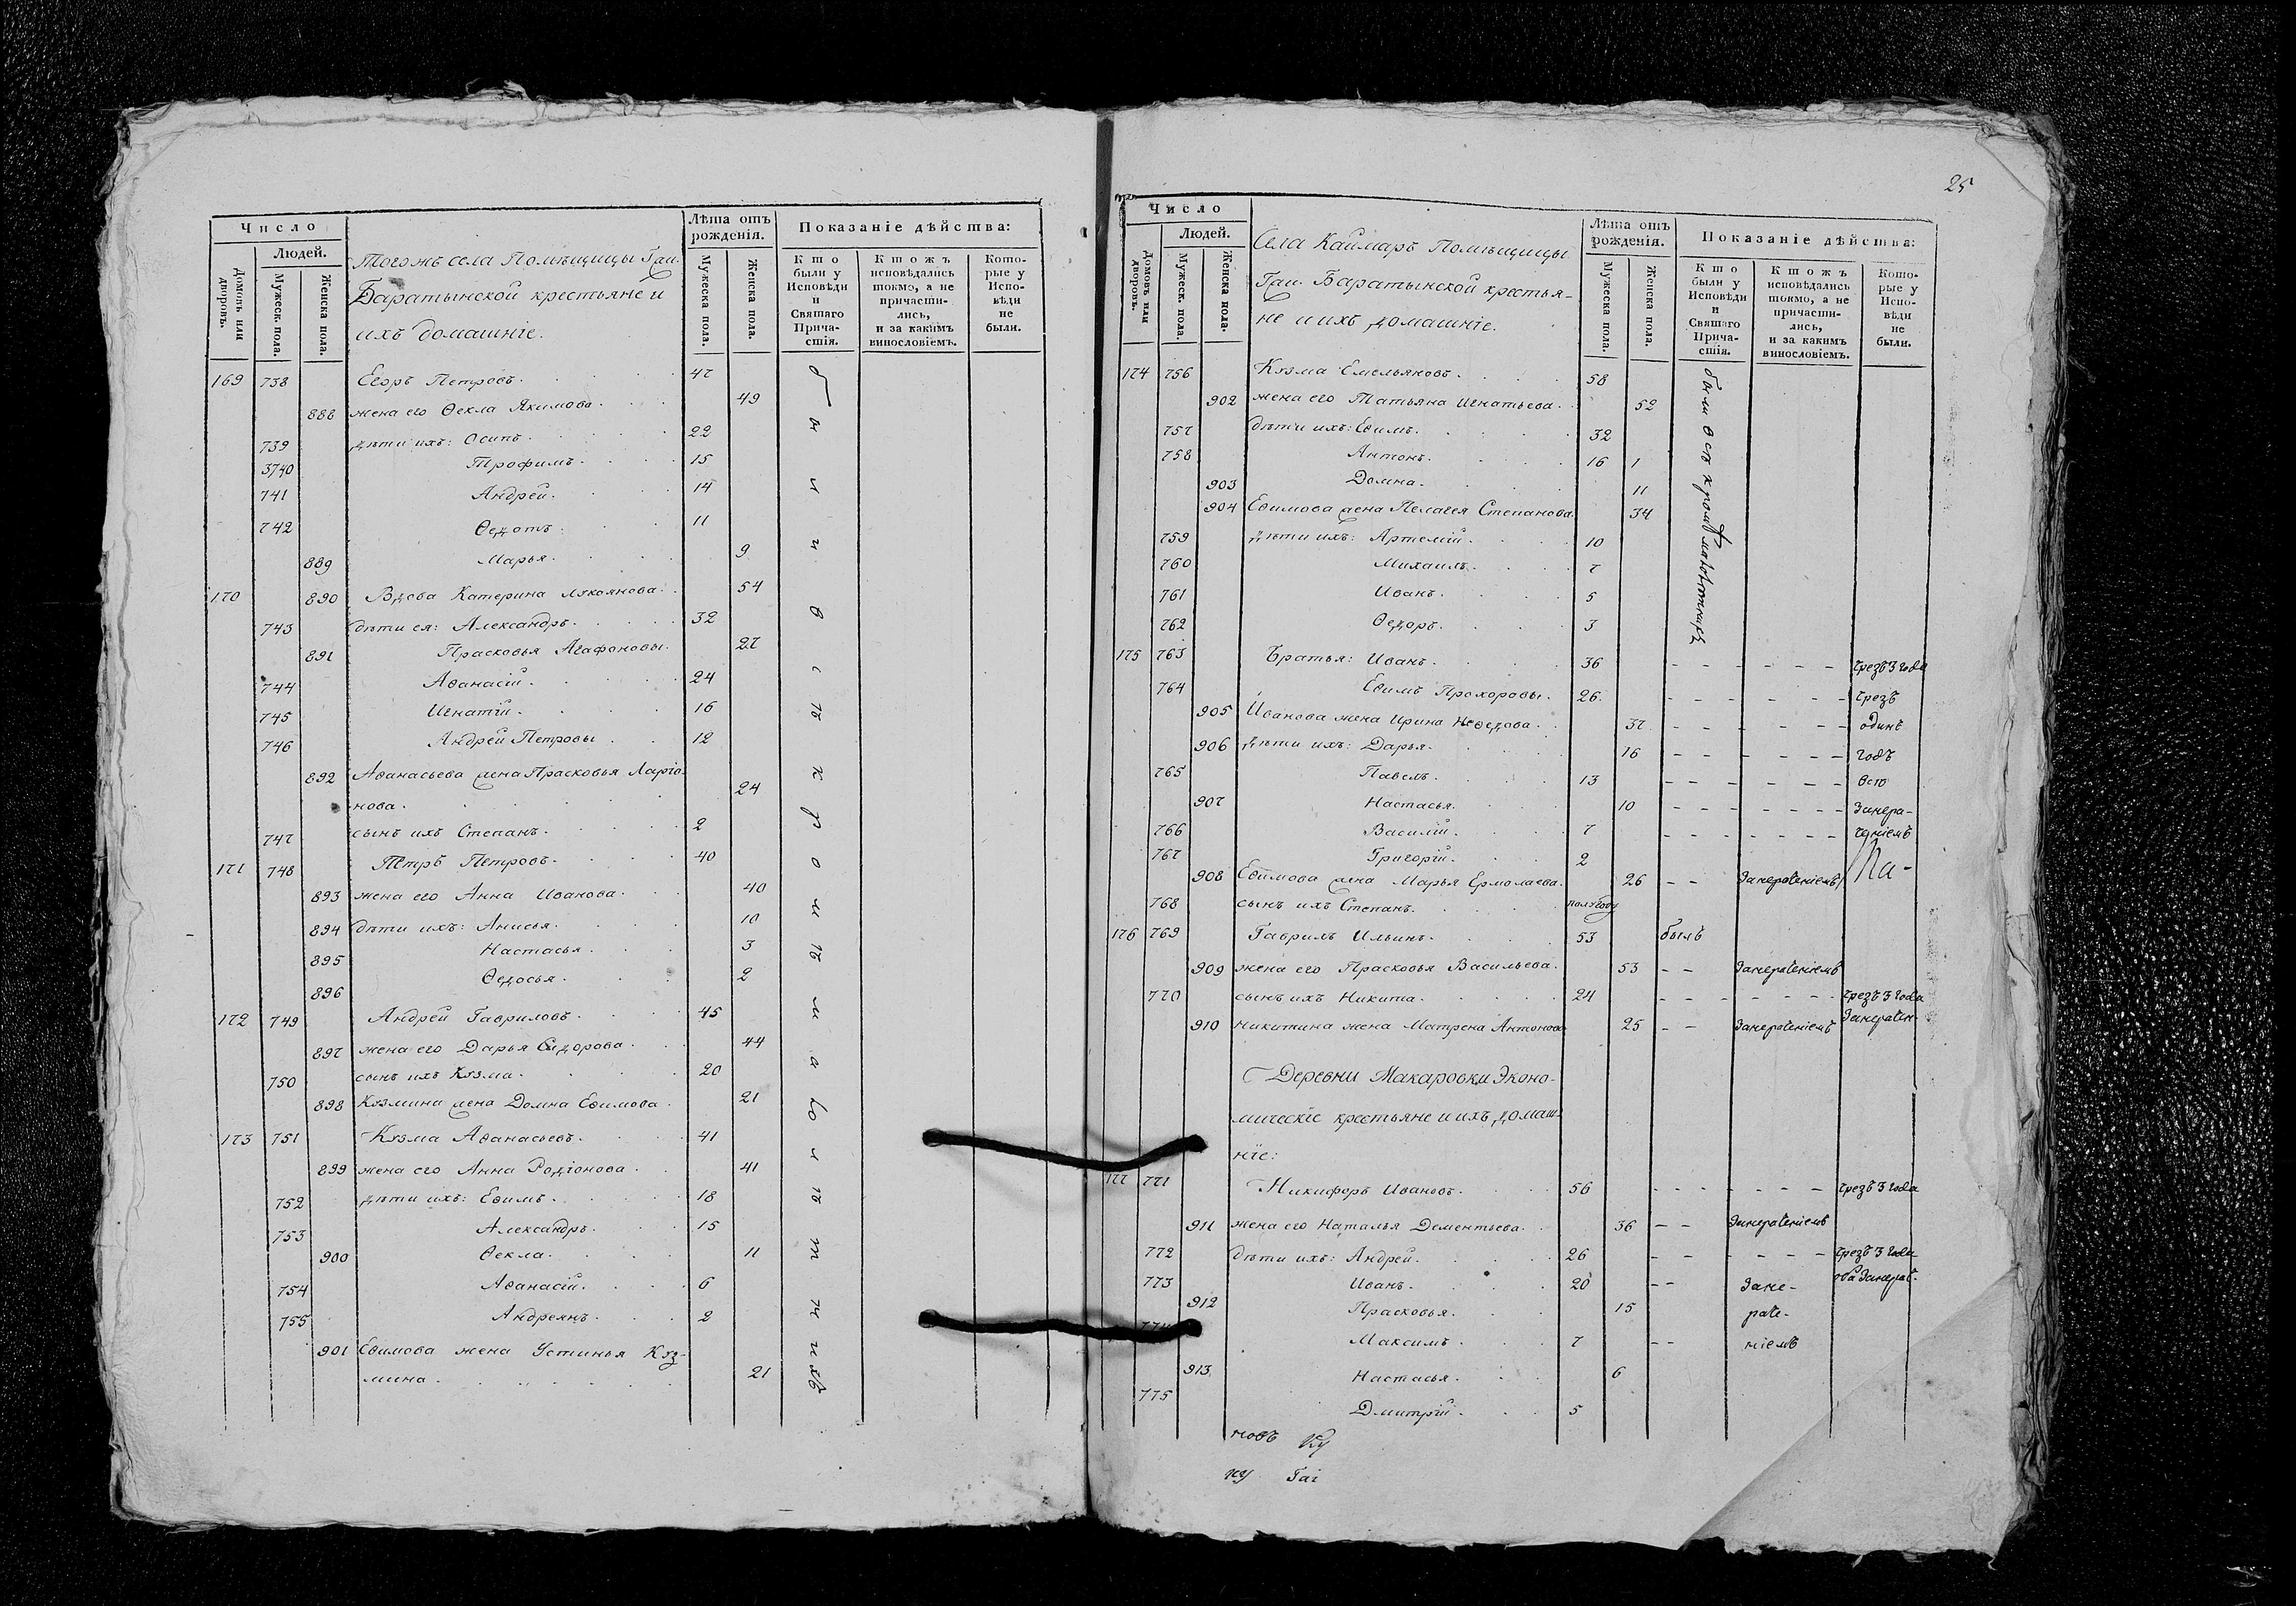 Число
Людей.
Домовъ или дворовъ.
Мужеск. пола.
Женска пола.
Тогожъ села Помѣщицы Ган.
Баратынской крестьяне и
ихъ домашніе.
Лѣта отъ рожденія.
Мужеска пола.
Женска пола.
Показаніе дѣйства:
Кто были у Исповѣди и Святаго Причастія.
Ктожъ исповѣдались токмо, а не причастились, и за какимъ винословіемъ.
Которые у Исповѣди не были.
169 738 Егоръ Петровъ. 47
888 жена его Ѳекла Якимова. 49
739 дѣти ихъ: Осипъ. 22
3740 Трофимъ. 15
741 Андрей. 14
742 Ѳедотъ. 11
889 Марья. 9
170 890 Вдова Катерина Лукоянова. 54
743 дѣти ея: Александръ. 32
891 Прасковья Агафоновы. 27
744 Аѳанасій. 24
745 Игнатій. 16
746 Андрей Петровы 12
892 Аѳанасьева жена Прасковья Ларіо-
нова. 24
747 сынъ ихъ Степанъ. 2
171 748 Петръ Петровъ. 40
893 жена его Анна Иванова. 40
894 дѣти ихъ: Анисья. 10
895 Настасья. 3
896 Ѳедосья. 2
172 749 Андрей Гавриловъ. 45
897 жена его Дарья Сидорова. 44
750 сынъ ихъ Кузма. 20
898 Кузмина жена Домна Еѳимова. 21
173 751 Кузма Аѳанасьевъ. 41
899 жена его Анна Родіонова. 41
752 дѣти ихъ: Еѳимъ. 18
753 Александръ. 15
900 Ѳекла. 11
754 Аѳанасій. 6
755 Андреянъ. 2
901 Еѳимова жена Устинья Куз-
мина. 21
были всѣ кромѣ малолѣтнихъ
25
Число
Людей.
Домовъ или дворовъ.
Мужеск. пола.
Женска пола.
Села Каймаръ Помѣщицы
Ган. Баратынской крестья-
не и ихъ домашніе.
Лѣта отъ рожденія.
Мужеска пола.
Женска пола.
Показаніе дѣйства:
Кто были у Исповѣди и Святаго Причастія.
Ктожъ исповѣдались токмо, а не причастились, и за какимъ винословіемъ.
Которые у Исповѣди не были.
174 756 Кузма Емельяновъ. 58
902 жена его Татьяна Игнатьева. 52
757 дѣти ихъ: Еѳимъ. 32
758 Антонъ. 16 1
903 Домна. 11
904 Еѳимова жена Пелагея Степанова. 34
759 дѣти ихъ: Артемій. 10
760 Михаилъ. 7
761 Иванъ. 5
762 Ѳедоръ. 3
были всѣ кромѣ малолѣтнихъ
175 763 Братья: Иванъ. 36 - - - - - - чрезъ 3 года
764 Еѳимъ Прохоровы. 26. - - - - - чрезъ
905 Иванова жена Ирина Неѳедова. 37 - - - - - - одинъ
906 дѣти ихъ: Дарья. 16 - - - - - - годъ
765 Павелъ. 13 - - - - - - всѣ
907 Настасья. 10 - - - - - - Занера-
766 Василій. 7 - - - - - - ченіемъ
767 Григорій. 2
908 Еѳимова жена Марья Ермолаева. 26 - - Занераченіемъ
768 сынъ ихъ Степанъ. полугоду
176 769 Гаврилъ Ильинъ. 53 былъ
909 жена его Прасковья Васильева. 53 - - Занераченіемъ
770 сынъ ихъ Никита. 24 - - - - - - чрезъ 3 года
910 Никитина жена Матрена Антонова 25 - - Занераченіемъ Занерачен.
Деревни Макаровки Эконо-
мическіе крестьяне и ихъ домаш-
ніе:
177 771 Никифоръ Ивановъ. 56 - - - - - - чрезъ 3 года
911 жена его Наталья Дементьева. 36 - - Занераченіемъ
772 дѣти ихъ: Андрей. 26 - - - - - - чрезъ 3 года
773 Иванъ. 20 - - Зане- оба Занерач.
912 Прасковья. 15 раче-
774 Максимъ. 7 - - ніемъ
913 Настасья. 6
775 Дмитрій. 5
новъ
ну